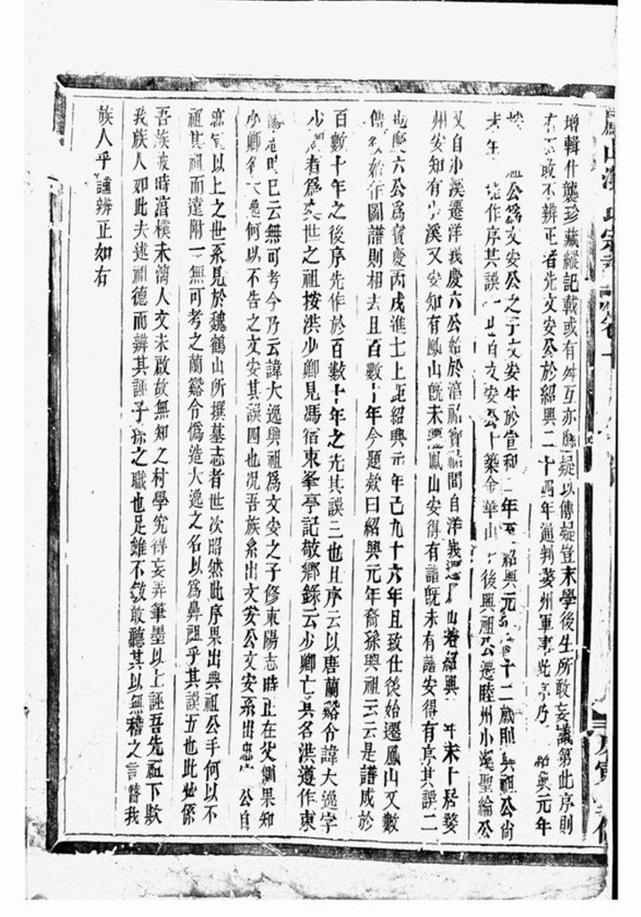 增輯什襲珍藏縱記載或有舛互亦應疑以傳疑豈末學後生所敢妄議第此序則
有不敢不辨正者先文安公於紹興二十四年通判婺州軍事此序乃紹興元年
公為文安公之子文安生於宣和二年至紹興元年十二歲則興祖公尚
未年作序其誤一也且自文安公卜築金華山下後興祖公遷睦州小溪聖綸公
又自小溪遷洋峩慶六公始於淳祐寶祐間自洋峩遷鳳山當紹興年未卜居婺
州安知有小溪又安知有鳳山旣未遷鳳山安得有譜旣未有譜安得有序其誤二
也慶六公為寶慶丙戌進士上距紹興元年已九十六年且致仕後始遷鳳山又數
傳後始作圖譜則相去且百數十年今題款曰紹興元年裔孫興祖云云是譜成於
百數十年之後序先作於百數十年之先其誤三也且序云以唐蘭谿令諱大逸字
少卿者為奕世之祖按洪少卿見馮宿東峯亭記敬鄉錄云少卿亡其名洪遵作東
陽志時已云無可考今乃云諱大逸興祖為文安之子修東陽志時正在父側果知
少卿名大逸何以不告之文安其誤四也況吾族系出文安公文安系出忠宣公自
忠宣以上之世系見於魏鶴山所撰墓志者世次昭然此序果出興祖公手何以不
祖其祖而遠附一無可考之蘭谿令偽造大逸之名以為鼻祖乎其誤五也此必係
吾族彼時渾樸未漓人文未啟故無知之村學究得妄弄筆墨以上誣吾先祖下欺
我族人如此夫述祖德而辨其誣子孫之職也足雖不敏敢聽其以無稽之言瞀我
族人乎謹辨正如右